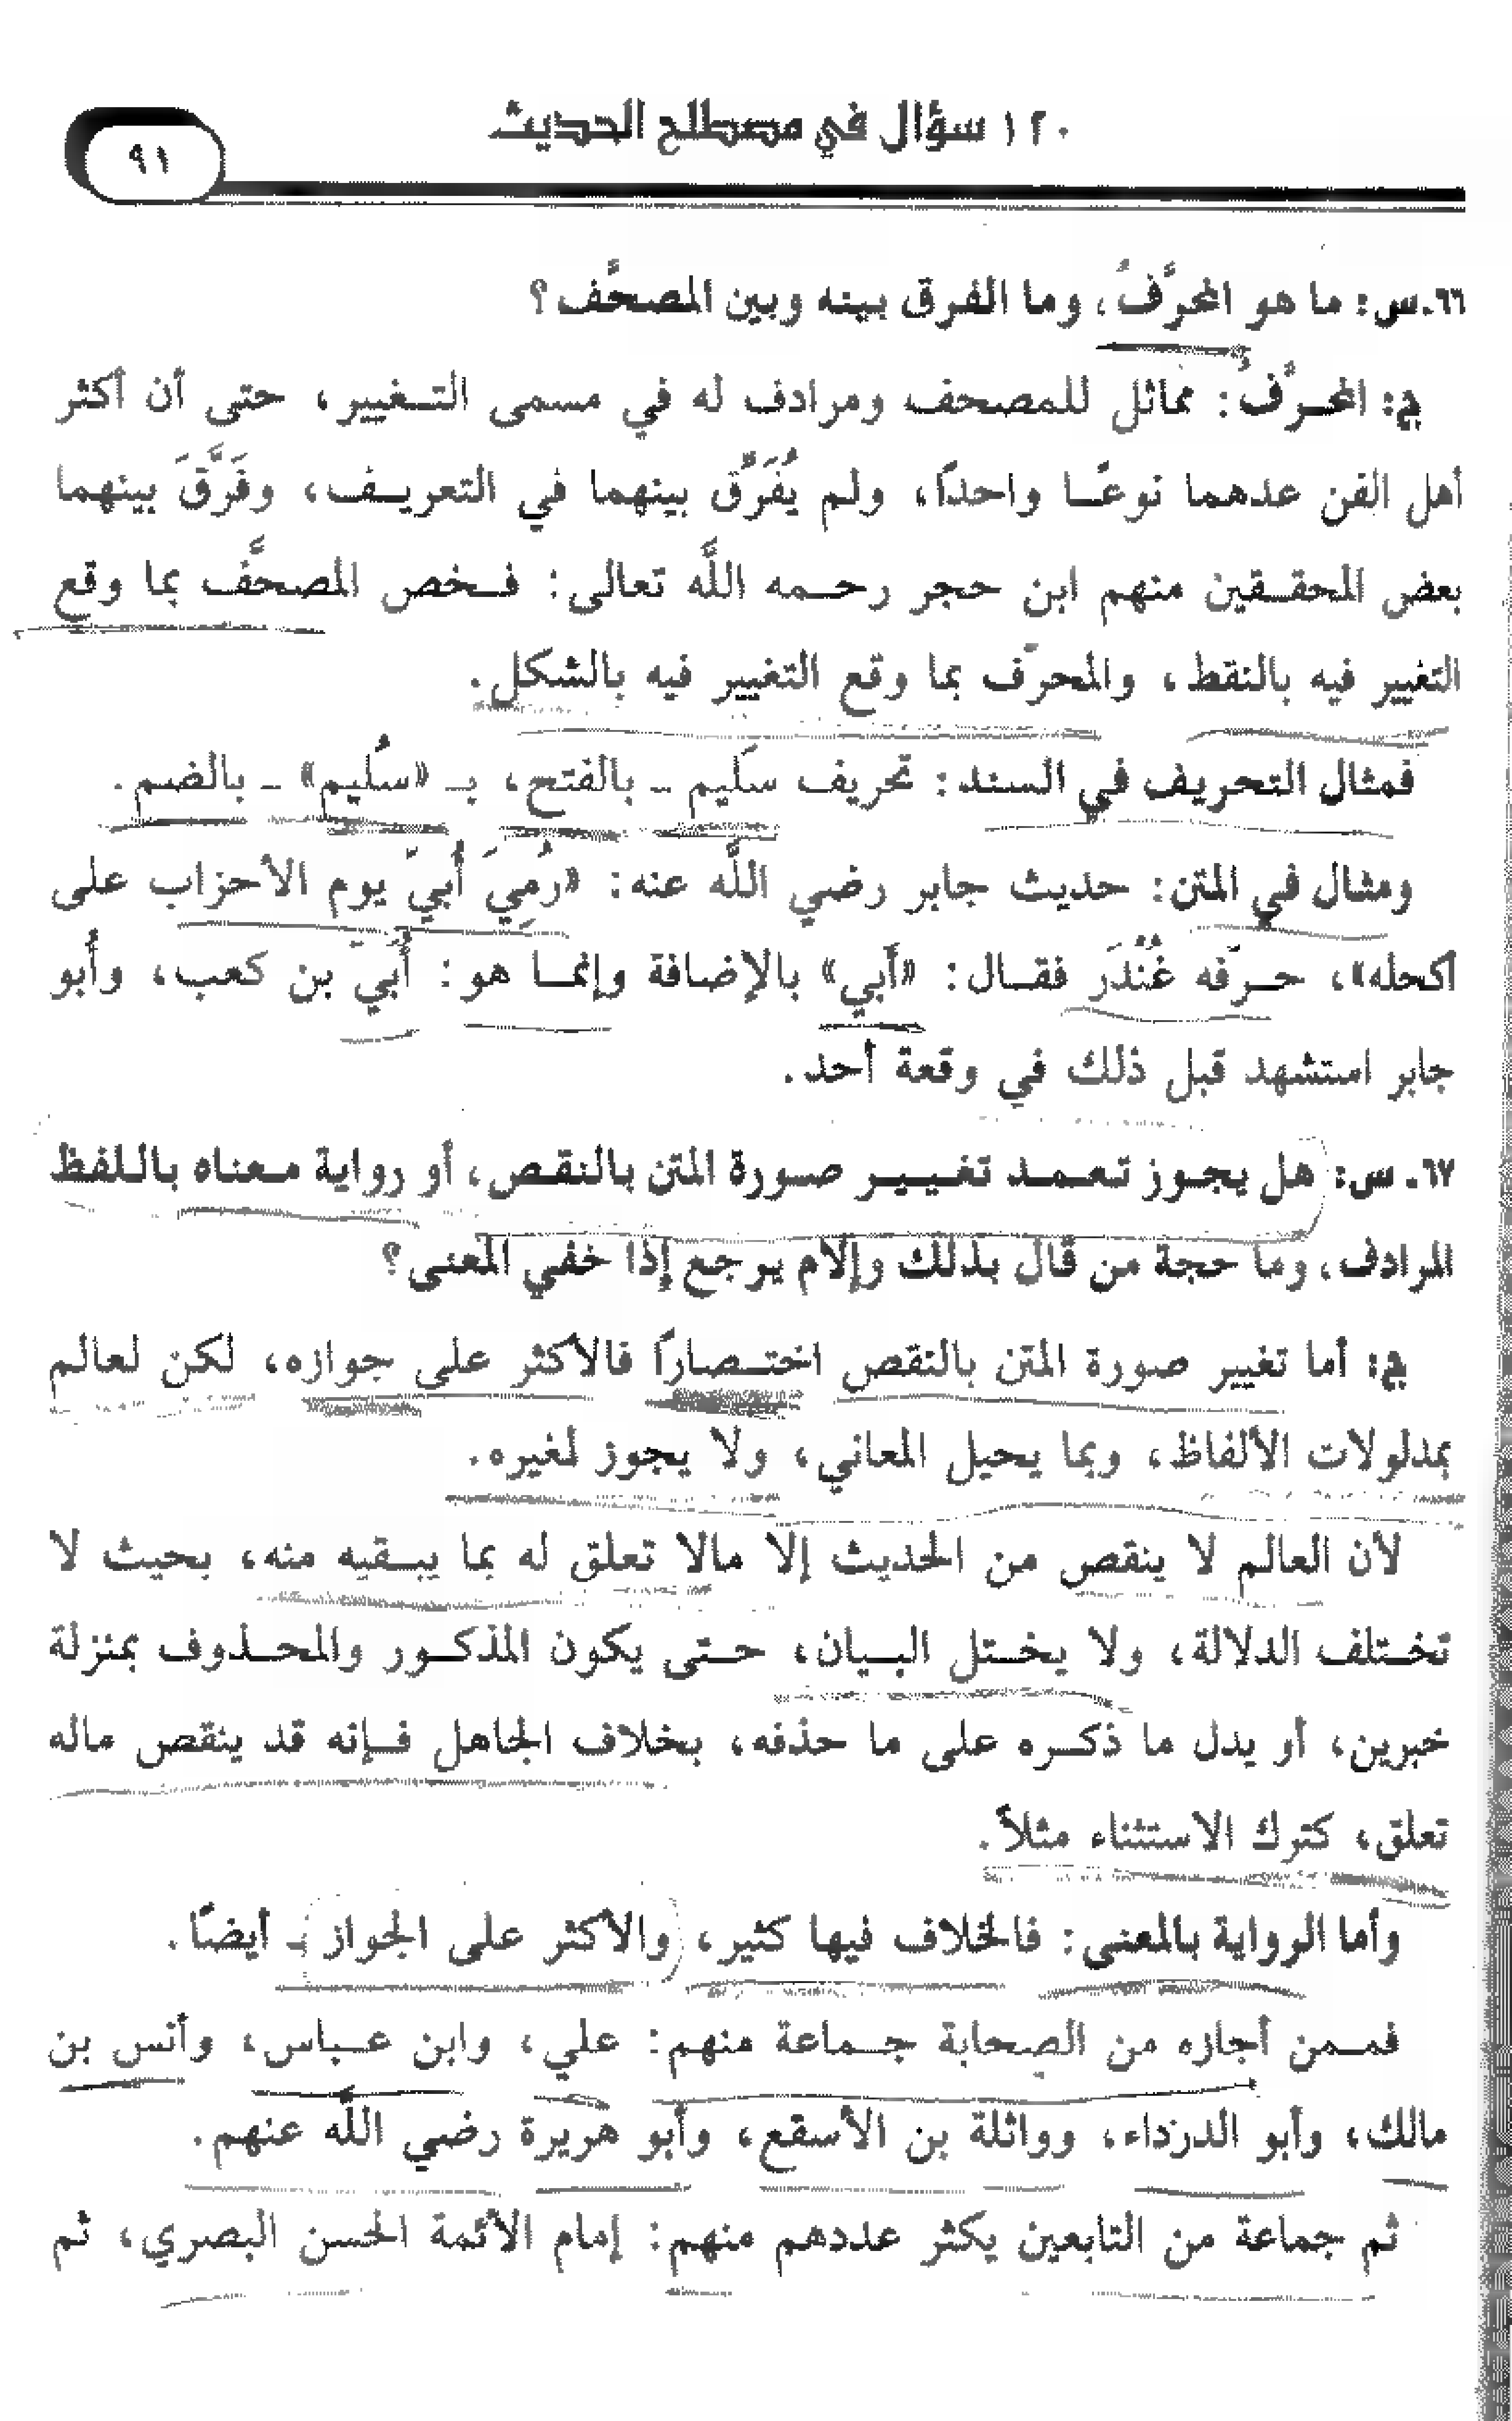 ١٢٠ سؤال في مصطلح الحديث
٩١
٦٦.س: ما هو المحرَّفُ، وما الفرق بينه وبين المصحَّف؟
ج: المحرَّفُ: مماثل للمصحف ومرادف له في مسمى التغيير، حتى أن أكثر
أهل الفن عدهما نوعًا واحدًا، ولم يُفَرِّق بينهما في التعريف، وفَرَّقَ بينهما
بعض المحققين منهم ابن حجر رحمه اللَّه تعالى: فخص المصحَّف بما وقع
التغيير فيه بالنقط، والمحرّف بما وقع التغيير فيه بالشكل.
فمثال التحريف في السند: تحريف سَليم ـ بالفتح، بـ «سُليم» ـ بالضم.
ومثال في المتن: حديث جابر رضي اللَّه عنه: «رُمِيَ أُبيّ يوم الأحزاب على
أكحله»، حرّفه غُنْدَر فقال: «أبي» بالإضافة وإنما هو: أُبَيّ بن كعب، وأبو
جابر استشهد قبل ذلك في وقعة أحد.
٦٧. س: هل يجوز تعمد تغيير صورة المتن بالنقص، أو رواية معناه باللفظ
المرادف، وما حجة من قال بذلك وإلام يرجع إذا خفي المعنى؟
ج: أما تغيير صورة المتن بالنقص اختصارًا فالأكثر على جوازه، لكن لعالم
بمدلولات الألفاظ، وبما يحيل المعاني، ولا يجوز لغيره.
لأن العالم لا ينقص من الحديث إلا مالا تعلق له بما يبقيه منه، بحيث لا
تختلف الدلالة، ولا يختل البيان، حتى يكون المذكور والمحذوف بمنزلة
خبرين، أو يدل ما ذكره على ما حذفه، بخلاف الجاهل فإنه قد ينقص ماله
تعلق، كترك الاستثناء مثلاً.
وأما الرواية بالمعنى: فالخلاف فيها كثير، والأكثر على الجواز ـ أيضًا.
فمن أجازه من الصحابة جماعة منهم: علي، وابن عباس، وأنس بن
مالك، وأبو الدرداء، وواثلة بن الأسقع، وأبو هريرة رضي اللَّه عنهم.
ثم جماعة من التابعين يكثر عددهم منهم: إمام الأئمة الحسن البصري، ثم